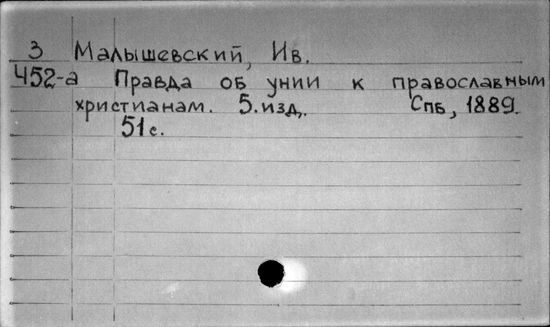 3 Малышевский, Ив.
Ч52-а Правда об унии к православным
христианам. 5. изд. Спб, 1889.
51 с.